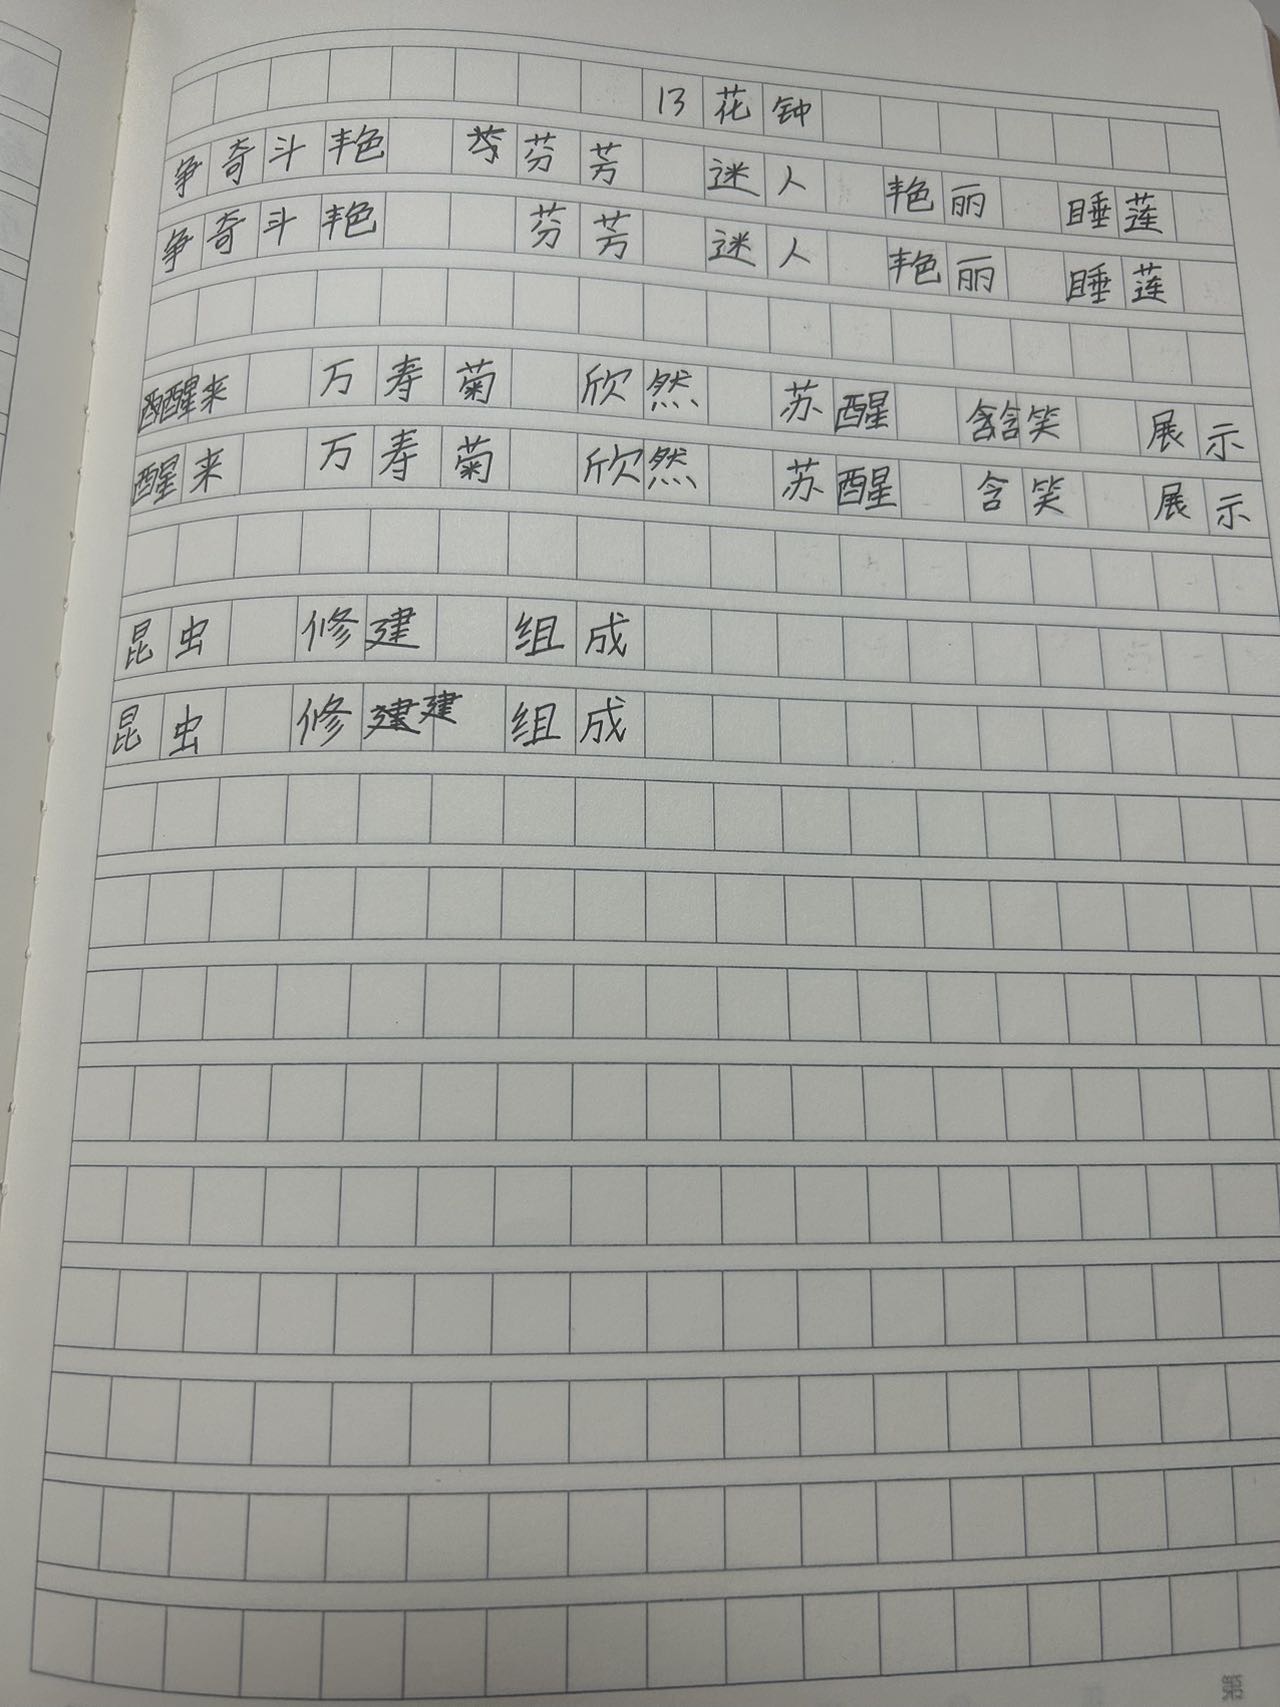 13 花钟
争奇斗艳 芬芳 迷人 艳丽 睡莲
争奇斗艳 芬芳 迷人 艳丽 睡莲
醒来 万寿菊 欣然 苏醒 含笑 展示
醒来 万寿菊 欣然 苏醒 含笑 展示
昆虫 修建 组成
昆虫 修建 组成
第